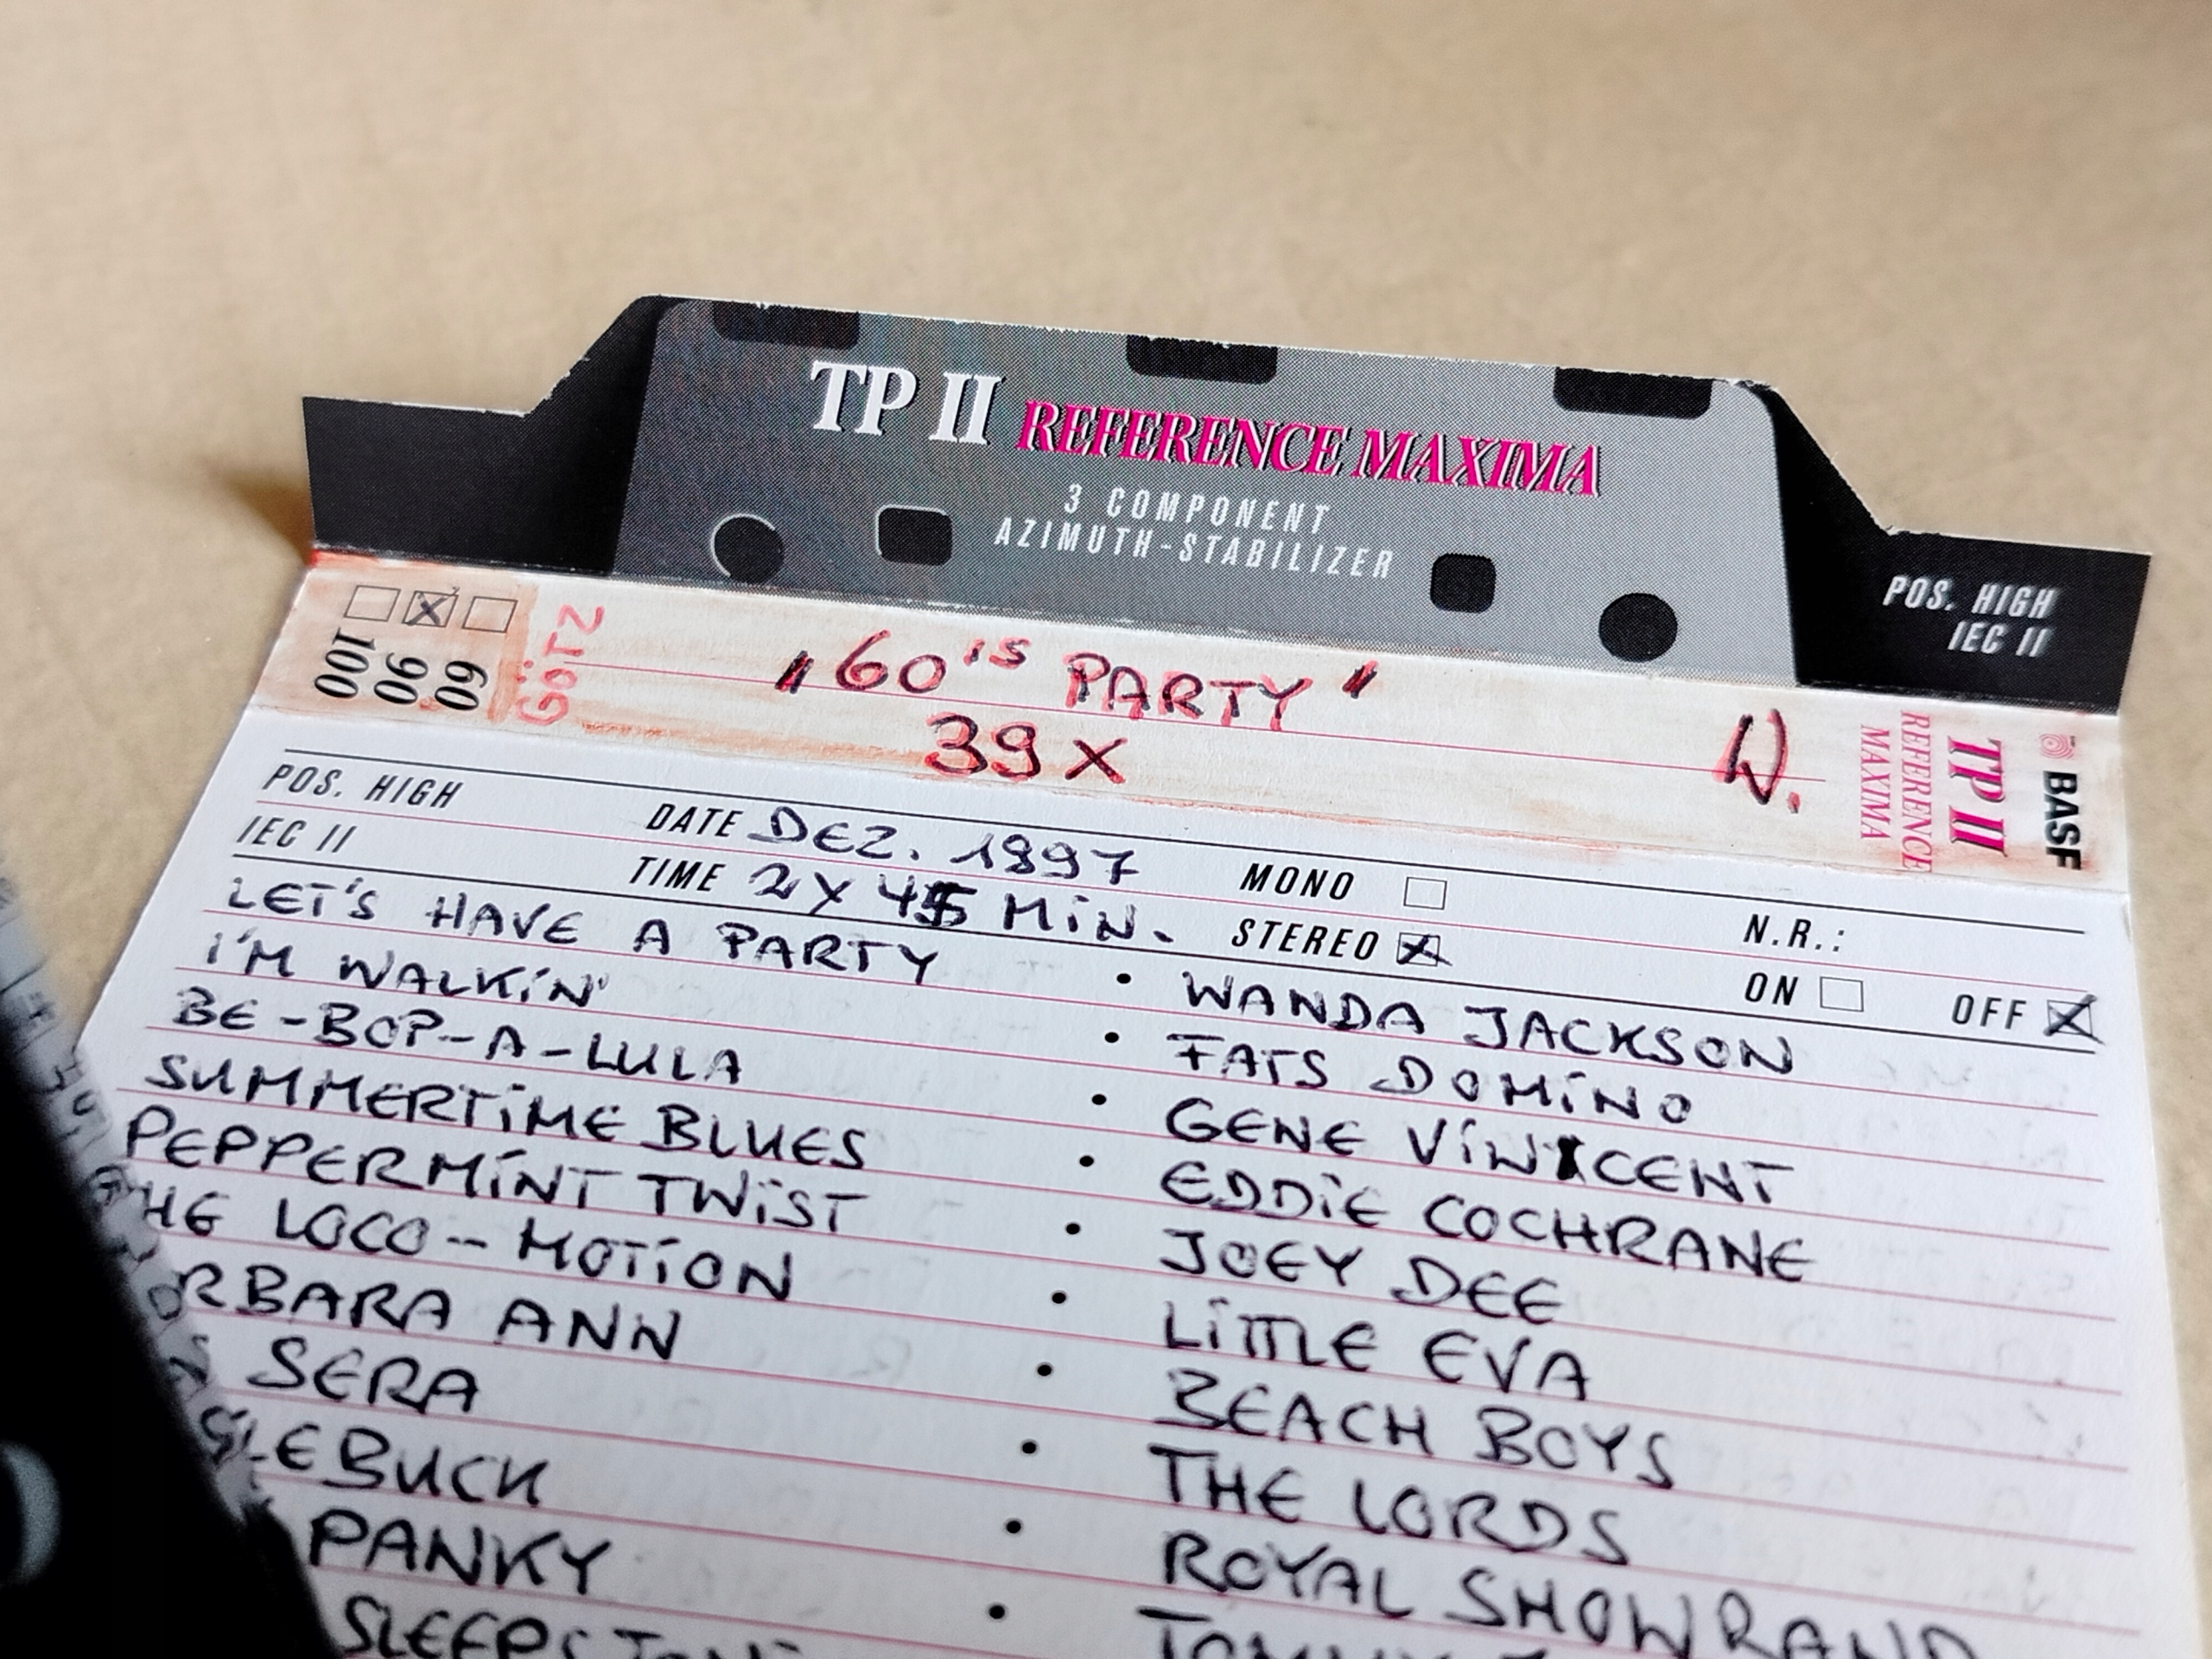 TP II REFERENCE MAXIMA
3 COMPONENT
AZIMUTH-STABILIZER
POS. HIGH
IEC II
60
90
100
GÖTZ
"60'S PARTY"
39 X
W.
TP II
REFERENCE
MAXIMA
BASF
POS. HIGH
IEC II
DATE DEZ. 1997
TIME 2 X 45 MiN.
MONO
STEREO
N.R.:
ON OFF
LET'S HAVE A PARTY • WANDA JACKSON
I'M WALKiN' • FATS DOMiNO
BE-BOP-A-LULA • GENE ViNCENT
SUMMERTiME BLUES • EDDiE COCHRANE
PEPPERMiNT TWiST • JOEY DEE
HE LOCO-MOTiON • LiTTLE EVA
RBARA ANN • BEACH BOYS
SERA • THE LORDS
LE BUCK • ROYAL SHOWBAND
PANKY •